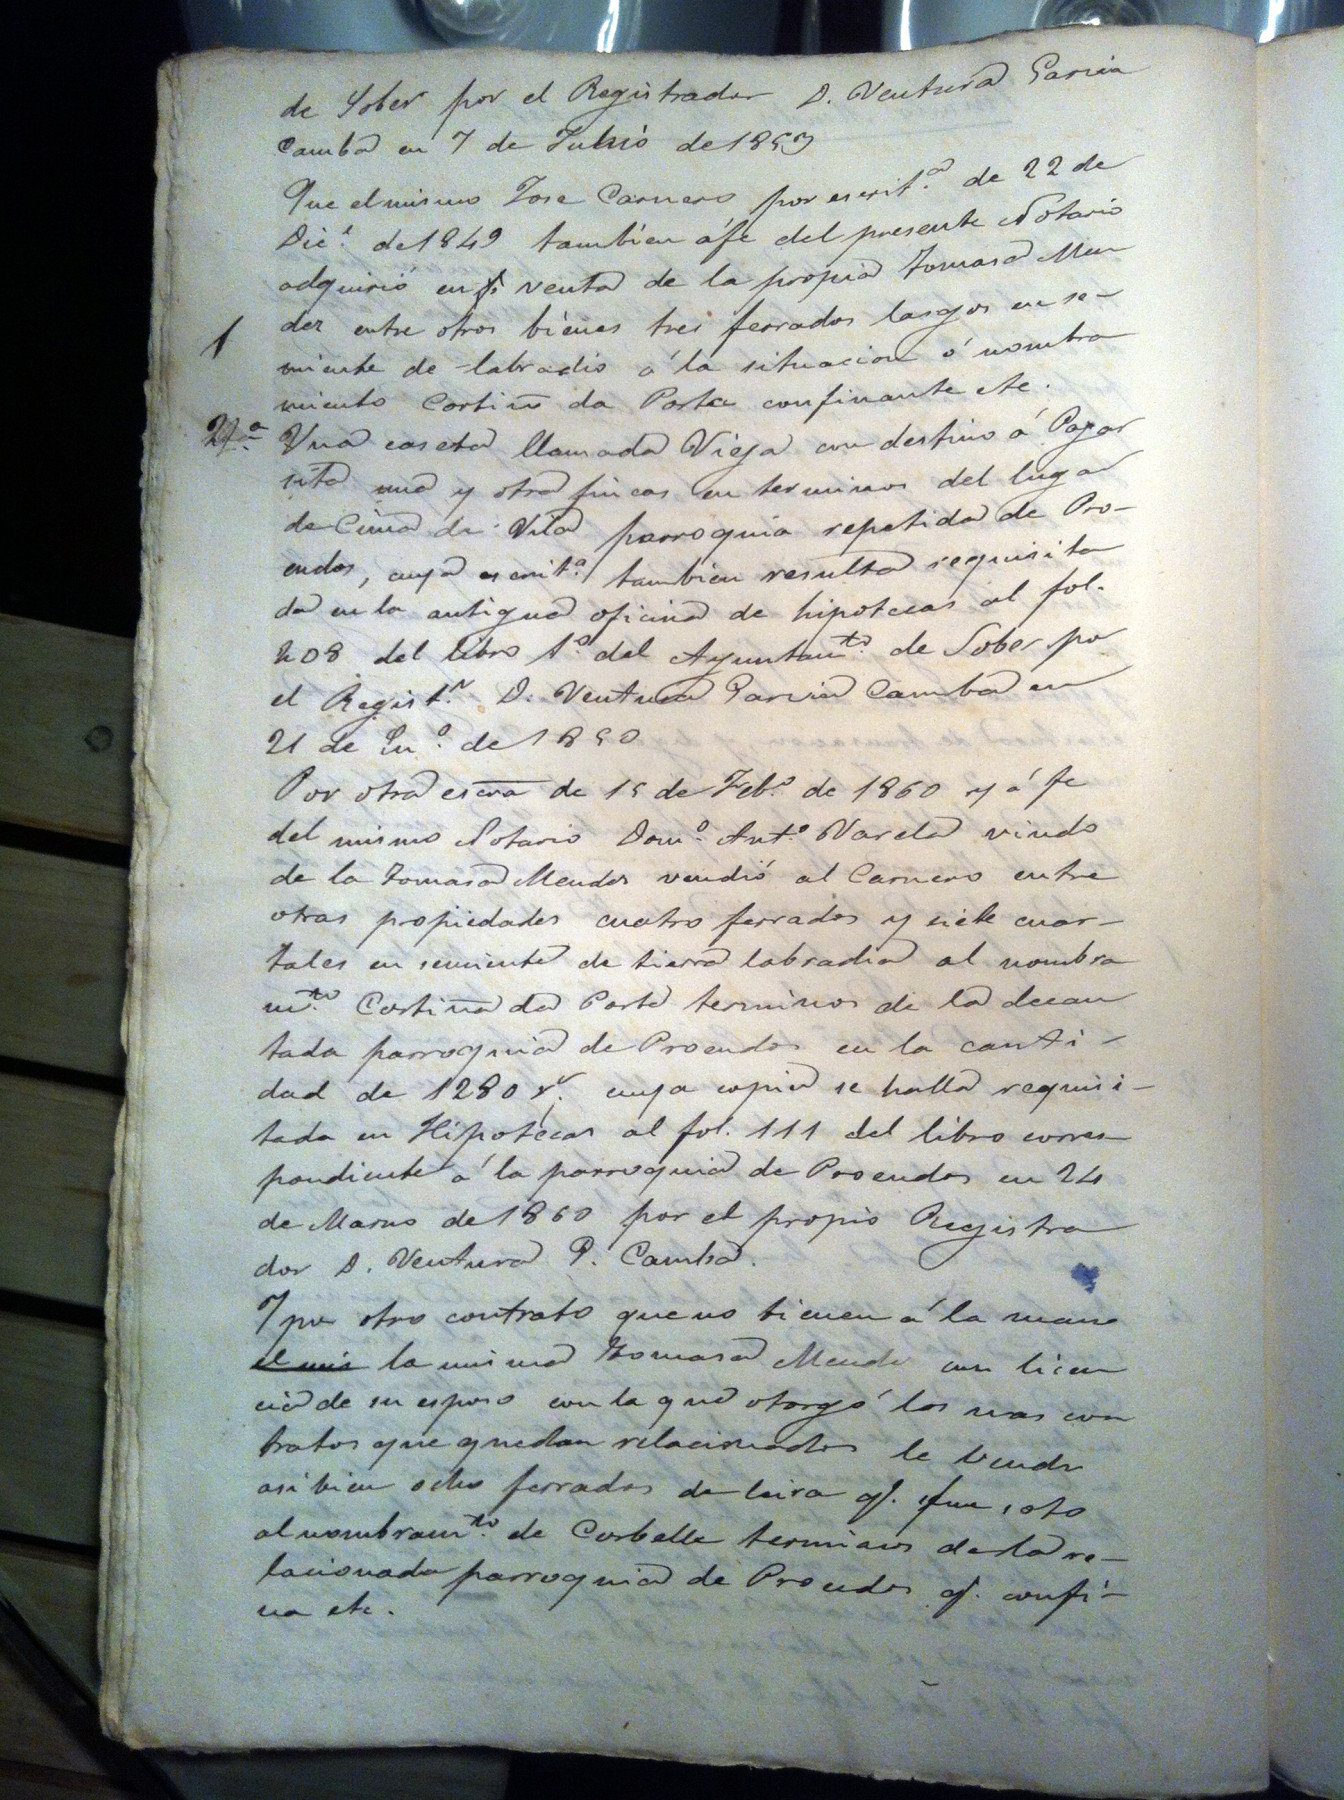 de Sober por el Registrador D. Ventura Garcia
Camba en 7 de Junio de 1853
Que el mismo Jose Carnero por escrit.ª de 22 de
Dic.e de 1849 tambien á fe del presente Notario
adquirió en venta de la propia Tomasa Men
dez entre otros bienes tres ferrados largos en se-
1
miente de labradio á la situacion ó nombra
miento Cortiña da Porta confinante etc.
2ª
Una caseta llamada Vieja con destino á Pajar
sita una y otra fincas en terminos del lugar
de Cima de Vila parroquia repetida de Pro-
endos, cuya escrit.ª tambien resulta requisita
da en la antigua oficina de hipotecas al fol.
208 del libro 1º del Ayuntam.to de Sober por
el Regist.r D. Ventura Garcia Camba en
21 de En.º de 1850
Por otra escra de 15 de Feb.º de 1860 y á fe
del mismo Notario Dom.º Ant.º Varela viudo
de la Tomasa Mendez vendió al Carnero entre
otras propiedades cuatro ferrados y siete cuar-
tales en semiente de tierra labradia al nombra
m.to Cortiña da Porta terminos de la decan
tada parroquia de Proendos en la canti-
dad de 1280 r.s cuya copia se halla requisi-
tada en Hipotecas al fol. 111 del libro corres-
pondiente á la parroquia de Proendos en 24
de Marzo de 1860 por el propio Registra
dor D. Ventura G. Camba.
Y por otro contrato que no tienen á la mano
el mis la misma Tomasa Mende con licen
cia de su esposo con la que otorgó los mas con
tratos que quedan relacionados le vendi
asi bien ocho ferrados de leira q. fue soto
al nombram.to de Corbelle terminos de la re-
lacionada parroquia de Proendos q. confi-
na etc.